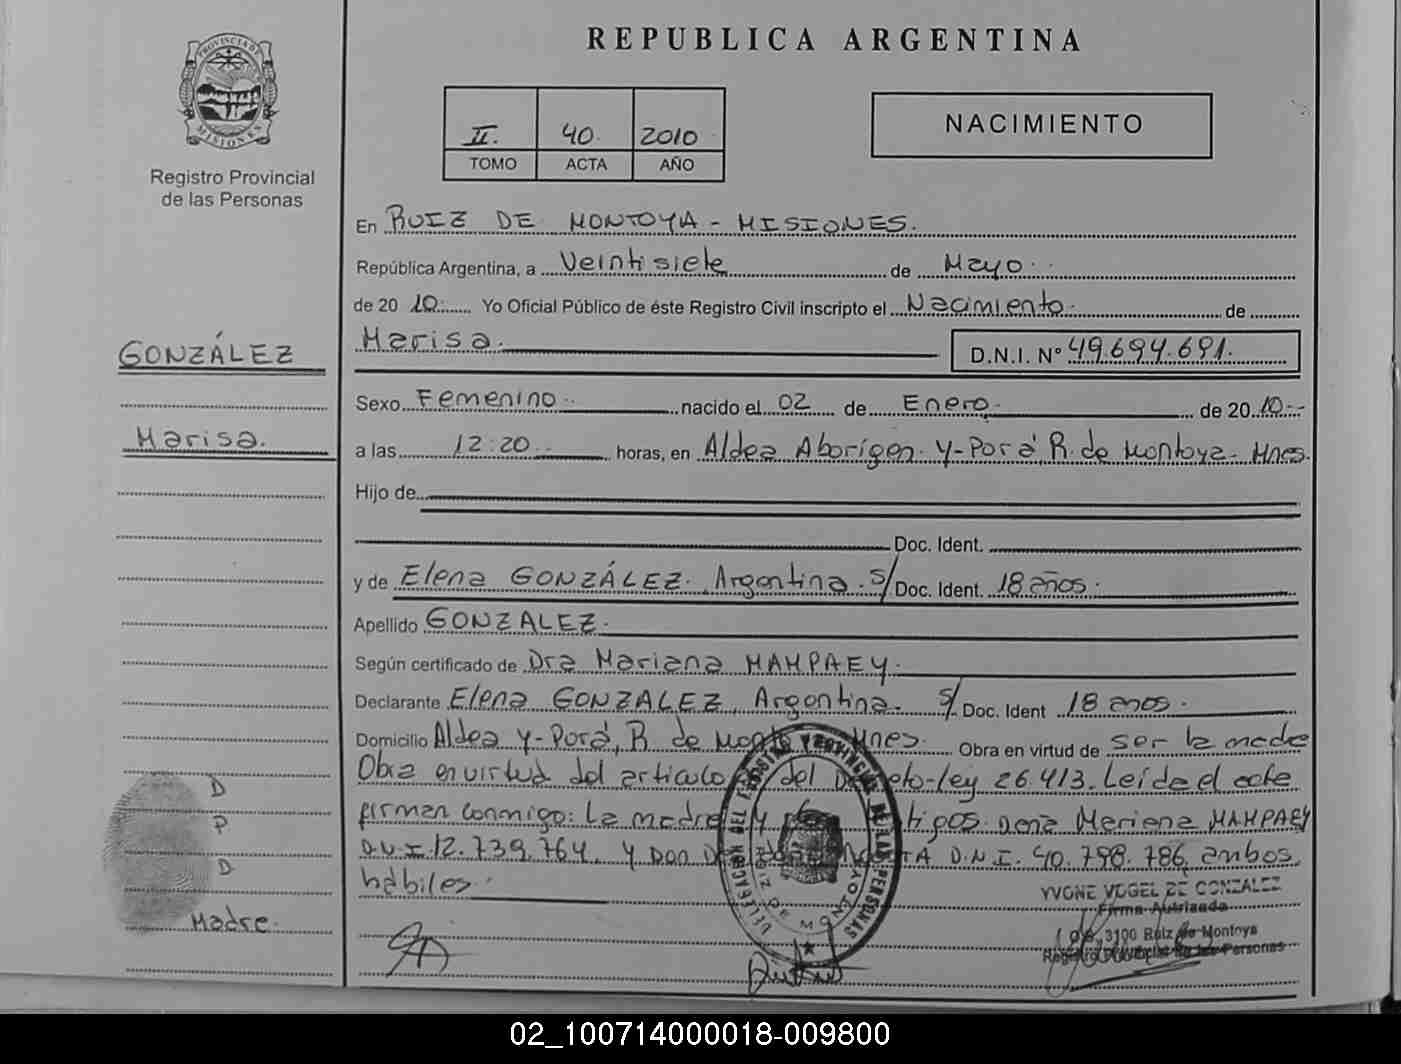 PROVINCIA DE
MISIONES
Registro Provincial
de las Personas
GONZÁLEZ
Marisa.
D
P
D
Madre.
REPUBLICA ARGENTINA
II. 40. 2010
TOMO ACTA AÑO
NACIMIENTO
En RUIZ DE MONTOYA - MISIONES.
República Argentina, a Veintisiete de Mayo.
de 20 10. Yo Oficial Público de éste Registro Civil inscripto el Nacimiento. de
Marisa. D.N.I. N° 49.694.691.
Sexo Femenino. nacido el 02 de Enero. de 20 10.-
a las 12:20 horas, en Aldea Aborigen Y-Porá, R. de Montoya - Mnes.
Hijo de
Doc. Ident.
y de Elena GONZÁLEZ. Argentina. S/ Doc. Ident. 18 años.
Apellido GONZALEZ.
Según certificado de Dra Mariana MAMPAEY.
Declarante Elena GONZALEZ, Argentina. S/ Doc. Ident 18 anos.
Domicilio Aldea Y-Porá, R. de Monto Mnes. Obra en virtud de ser la madre
Obra en virtud del articulo del Decreto-ley 26.413. Leída el acta
firman conmigo: La madre y tigos Dona Mariana MAMPAEY
D.N.I. 12.739.764. Y Don D.N.I. 40.798.786, ambos
hábiles.
DELEGACION DEL REGISTRO PROVINCIAL DE LAS PERSONAS
RUIZ DE MONTOYA
YVONE VOGEL DE GONZALEZ
Firma Autorizada
3100 Ruiz de Montoya
Registro Provincial de las Personas
02_100714000018-009800